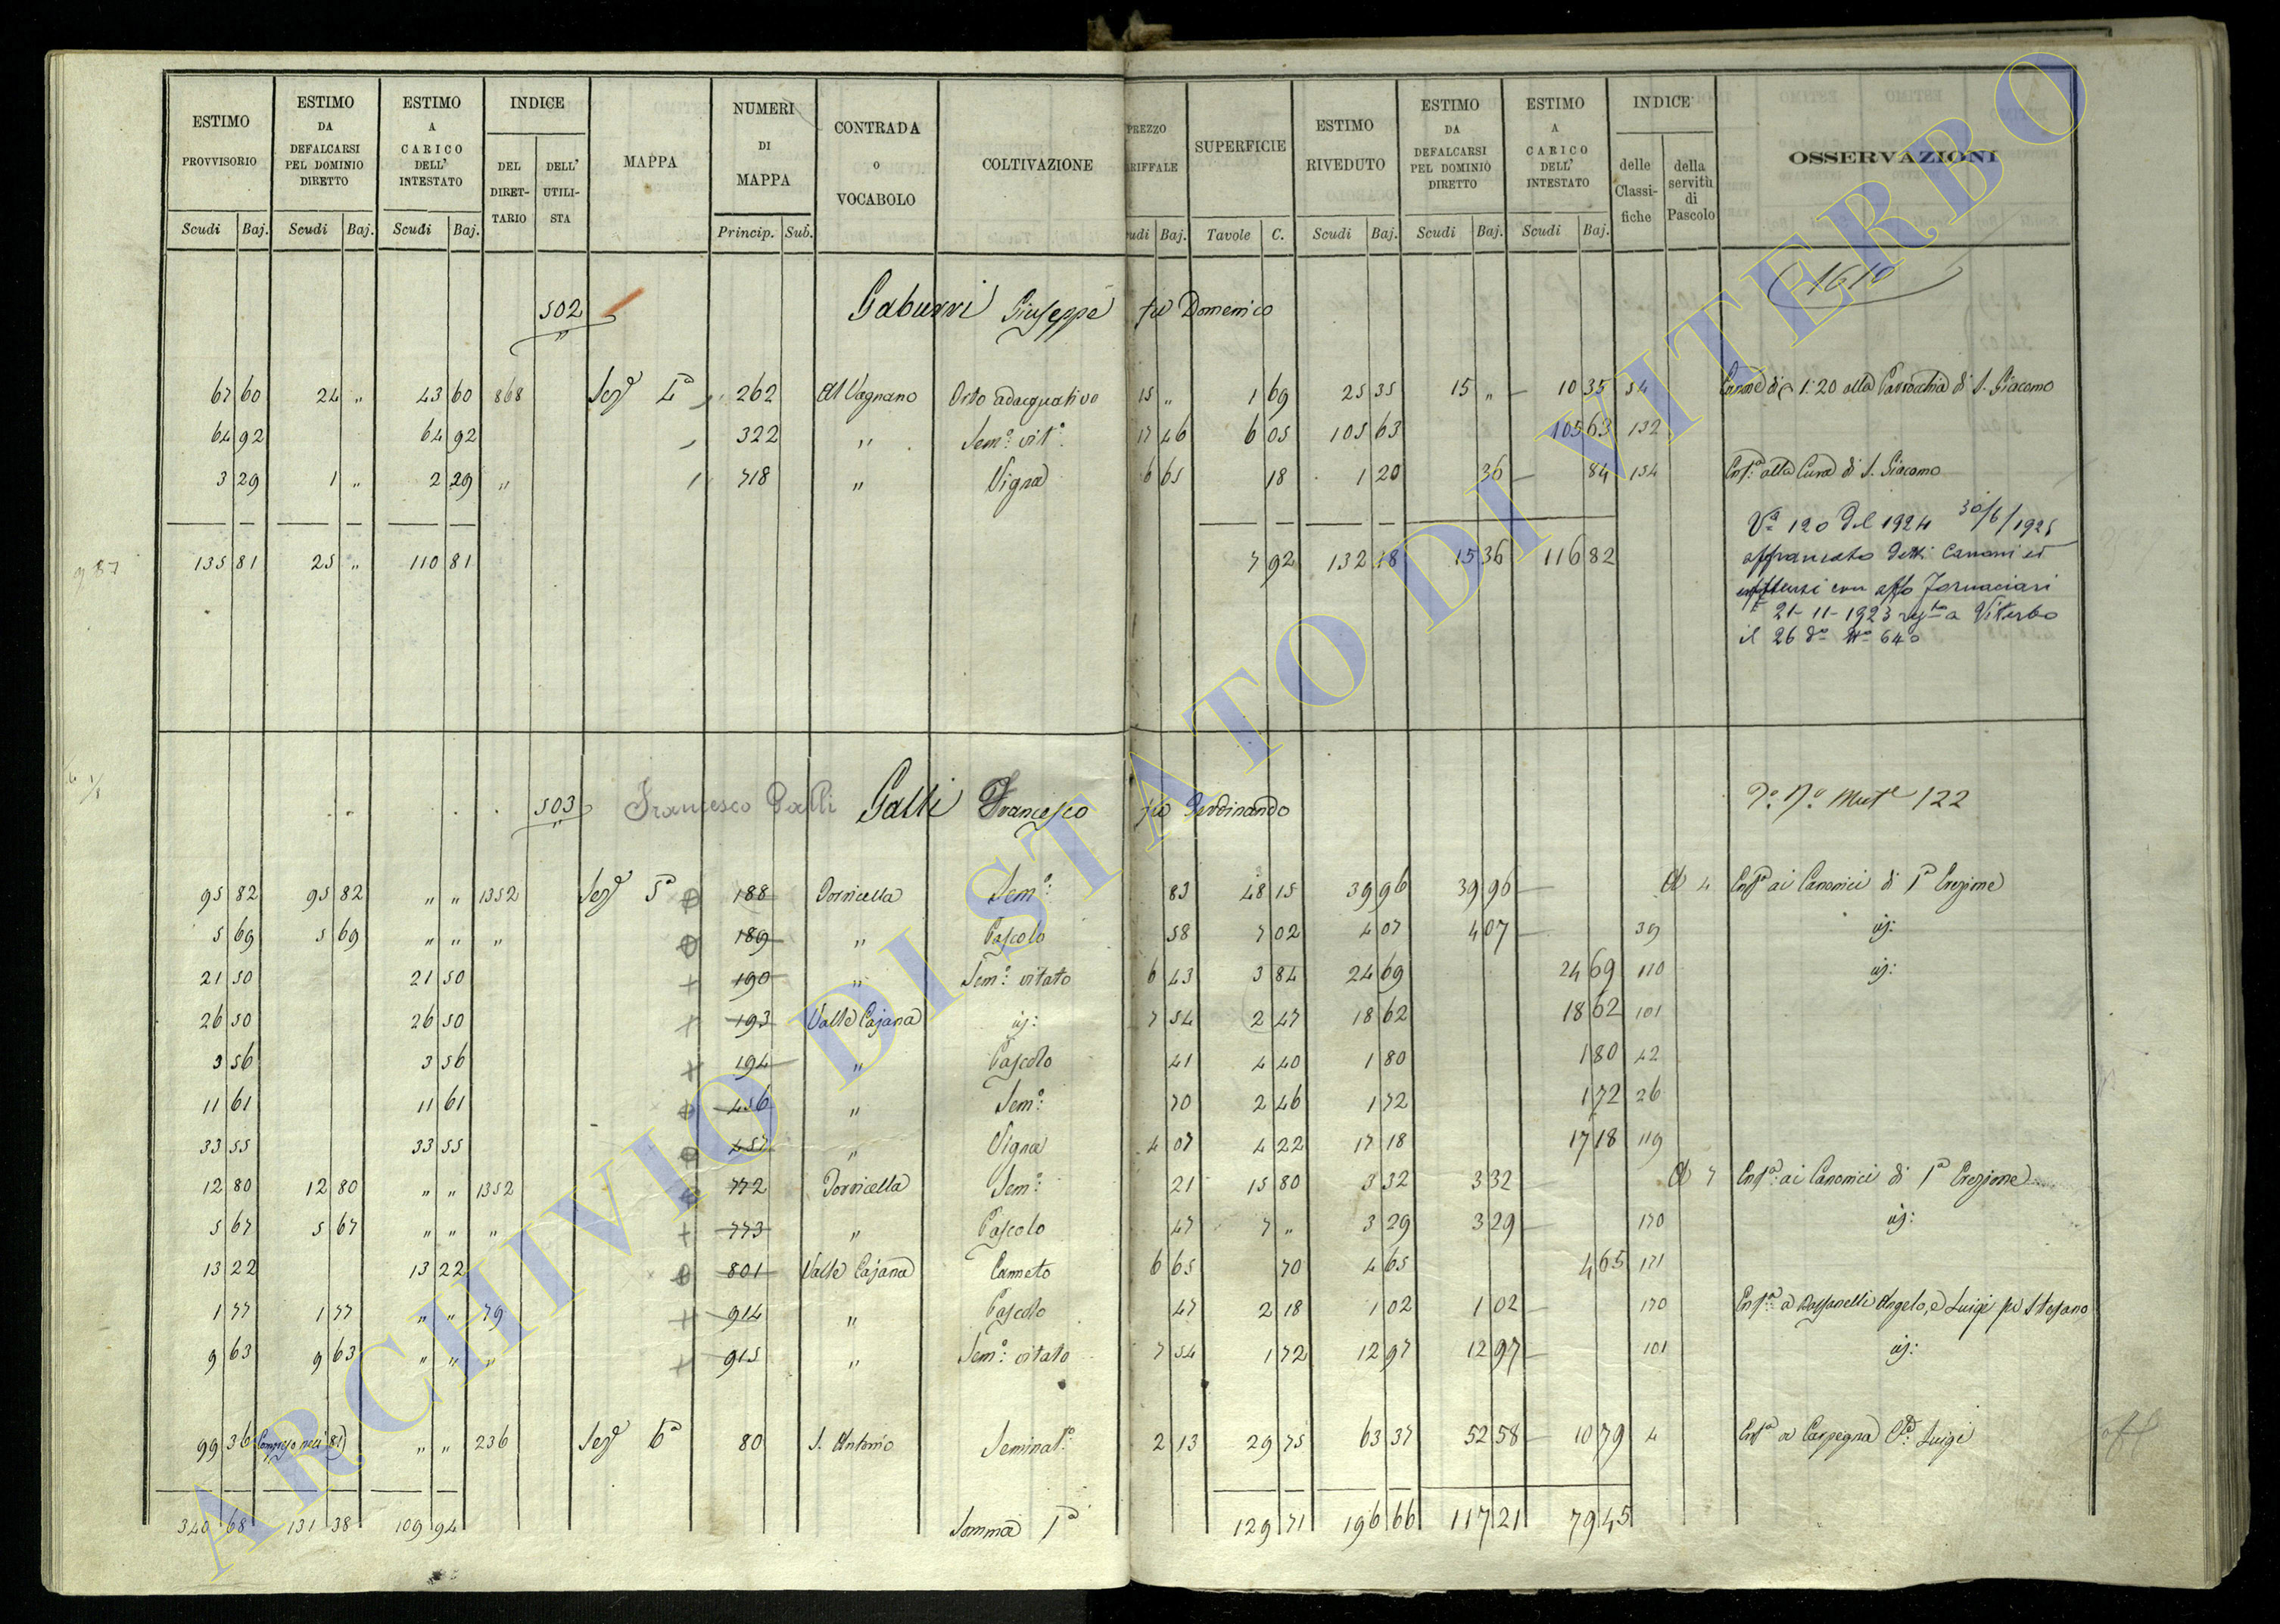 ESTIMO PROVVISORIO
ESTIMO DA DEFALCARSI PEL DOMINIO DIRETTO
ESTIMO A CARICO DELL' INTESTATO
INDICE
DEL DIRET- TARIO
DELL' UTILI- STA
MAPPA
NUMERI DI MAPPA
CONTRADA O VOCABOLO
COLTIVAZIONE
PREZZO RIFFALE
SUPERFICIE
ESTIMO RIVEDUTO
ESTIMO DA DEFALCARSI PEL DOMINIO DIRETTO
ESTIMO A CARICO DELL' INTESTATO
INDICE
delle Classi- fiche
della servitù di Pascolo
OSSERVAZIONI
Scudi Baj. Scudi Baj. Scudi Baj. Princip. Sub. udi Baj. Tavole C. Scudi Baj. Scudi Baj. Scudi Baj.
1610
502 Gaburri Giuseppe fu Domenico
67 60 24 „ 43 60 868 Sez.e 4a 262 Al Vagnano Orto adacquativo 15 „ 1 69 25 35 15 „ 10 35 54 Canone di 1:20 alla Parrocchia di S. Giacomo
64 92 64 92 322 „ Sem.o vit.o 17 46 6 05 105 63 105 63 132
3 29 1 „ 2 29 „ 718 „ Vigna 6 65 18 1 20 36 84 154 Enf.a alla Cura di S. Giacomo
135 81 25 „ 110 81 7 92 132 18 15 36 116 82
Va 120 del 1924 30/6/1925
affrancato detti Canoni ed
enfiteusi con atto Fornaciari
21-11-1923 reg.to a Viterbo
il 26 do No 640
503 Francesco Galli Galli Francesco fu Ferdinando
122
95 82 95 82 „ „ 1352 Sez.e 5a 188 Torricella Sem.o 83 48 15 39 96 39 96 A 4 Enf.a ai Canonici di 1a Erezione
5 69 5 69 „ „ „ 189 „ Pascolo 58 7 02 4 07 4 07 39 id:
21 50 21 50 190 „ Sem.o vitato 6 43 3 84 24 69 24 69 110 id:
26 50 26 50 193 Valle Cajana id: 7 54 2 47 18 62 18 62 101
3 56 3 56 194 „ Pascolo 41 4 40 1 80 1 80 42
11 61 11 61 456 „ Sem.o 70 2 46 1 72 1 72 26
33 55 33 55 457 „ Vigna 4 07 4 22 17 18 17 18 119
12 80 12 80 „ „ 1352 772 Torricella Sem.o 21 15 80 3 32 3 32 A 7 Enf.a ai Canonici di 1a Erezione
5 67 5 67 „ „ „ 773 „ Pascolo 47 7 „ 3 29 3 29 170 id:
13 22 13 22 801 Valle Cajana Canneto 6 65 70 4 65 4 65 171
1 77 1 77 „ „ 79 914 „ Pascolo 47 2 18 1 02 1 02 170 Enf.a a Angelo, e Luigi fu Stefano
9 63 9 63 „ „ „ 915 „ Sem.o vitato 7 54 1 72 12 97 12 97 101 id:
99 36 „ „ 236 Sez.e 6a 80 S. Antonio Seminat.o 2 13 29 75 63 37 52 58 10 79 4 Enf.a a Carpegna Luigi
340 68 131 38 109 94 Somma 1a 129 71 196 66 117 21 79 45
ARCHIVIO DI STATO DI VITERBO